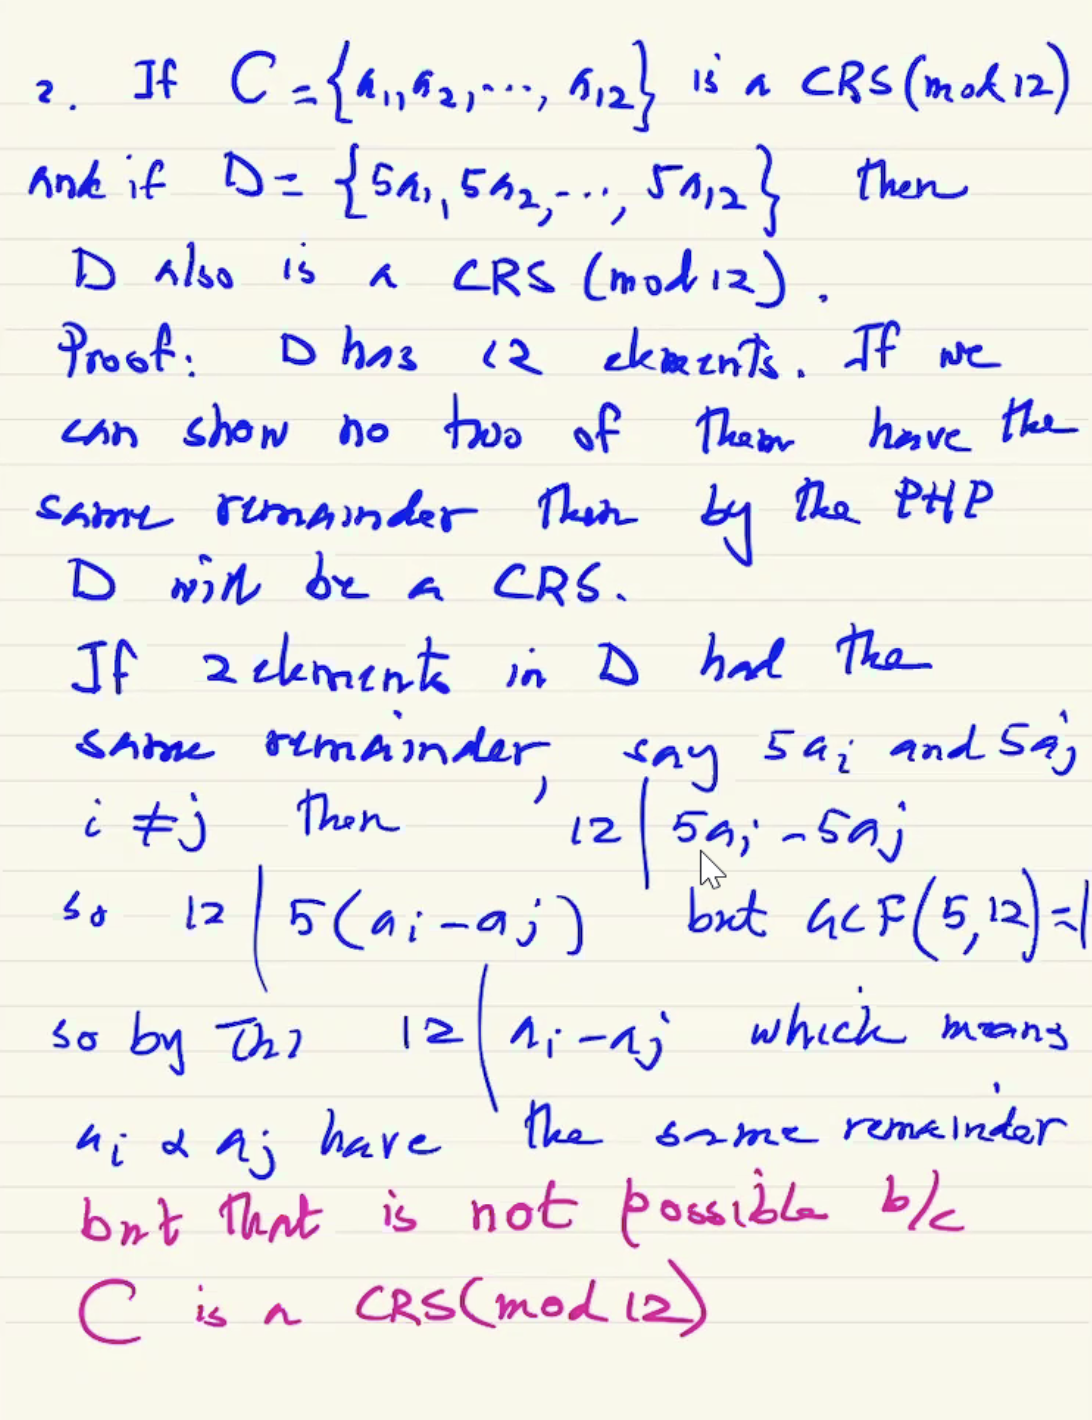 2. If C = {a₁, a₂, ..., a₁₂} is a CRS (mod 12)
and if D = {5a₁, 5a₂, ..., 5a₁₂} then
D also is a CRS (mod 12).
Proof: D has 12 elements. If we
can show no two of them have the
same remainder then by the PHP
D will be a CRS.
If 2 elements in D had the
same remainder, say 5aᵢ and 5aⱼ
i ≠ j then 12 | 5aᵢ - 5aⱼ
so 12 | 5(aᵢ - aⱼ) but GCF(5,12)=1
so by Th 12 | aᵢ - aⱼ which means
aᵢ & aⱼ have the same remainder
but that is not possible b/c
C is a CRS(mod 12)